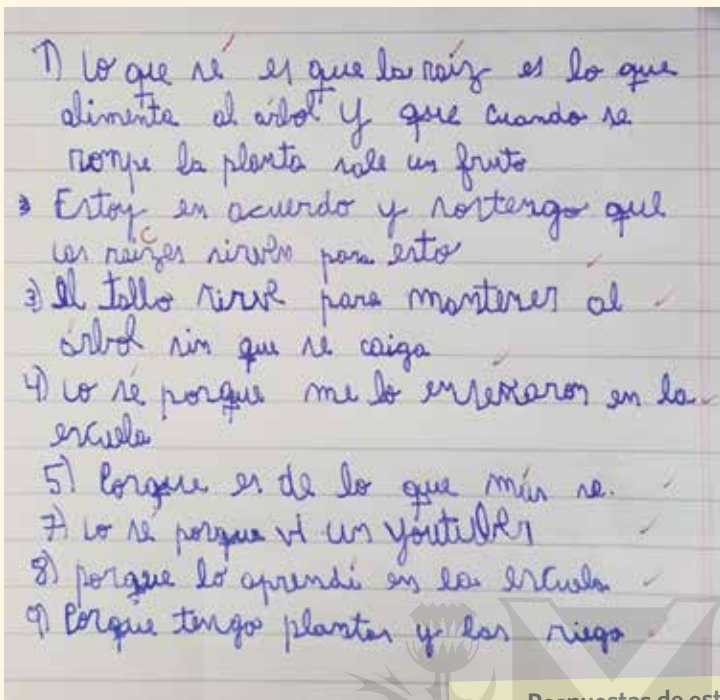 1) Lo que sé es que la raíz es lo que
alimenta al árbol y que cuando se
rompe la planta sale un fruto
Estoy en acuerdo y sostengo que
las raizes sirven para esto
c
3) El tallo sirve para mantener al
árbol sin que se caiga
4) Lo sé porque me lo enseñaron en la
escuela
5) Porque es de lo que más se.
7) Lo sé porque vi un youtuber
8) porque lo aprendí en la escuela
9) Porque tengo plantas y las riego
Respuestas de est